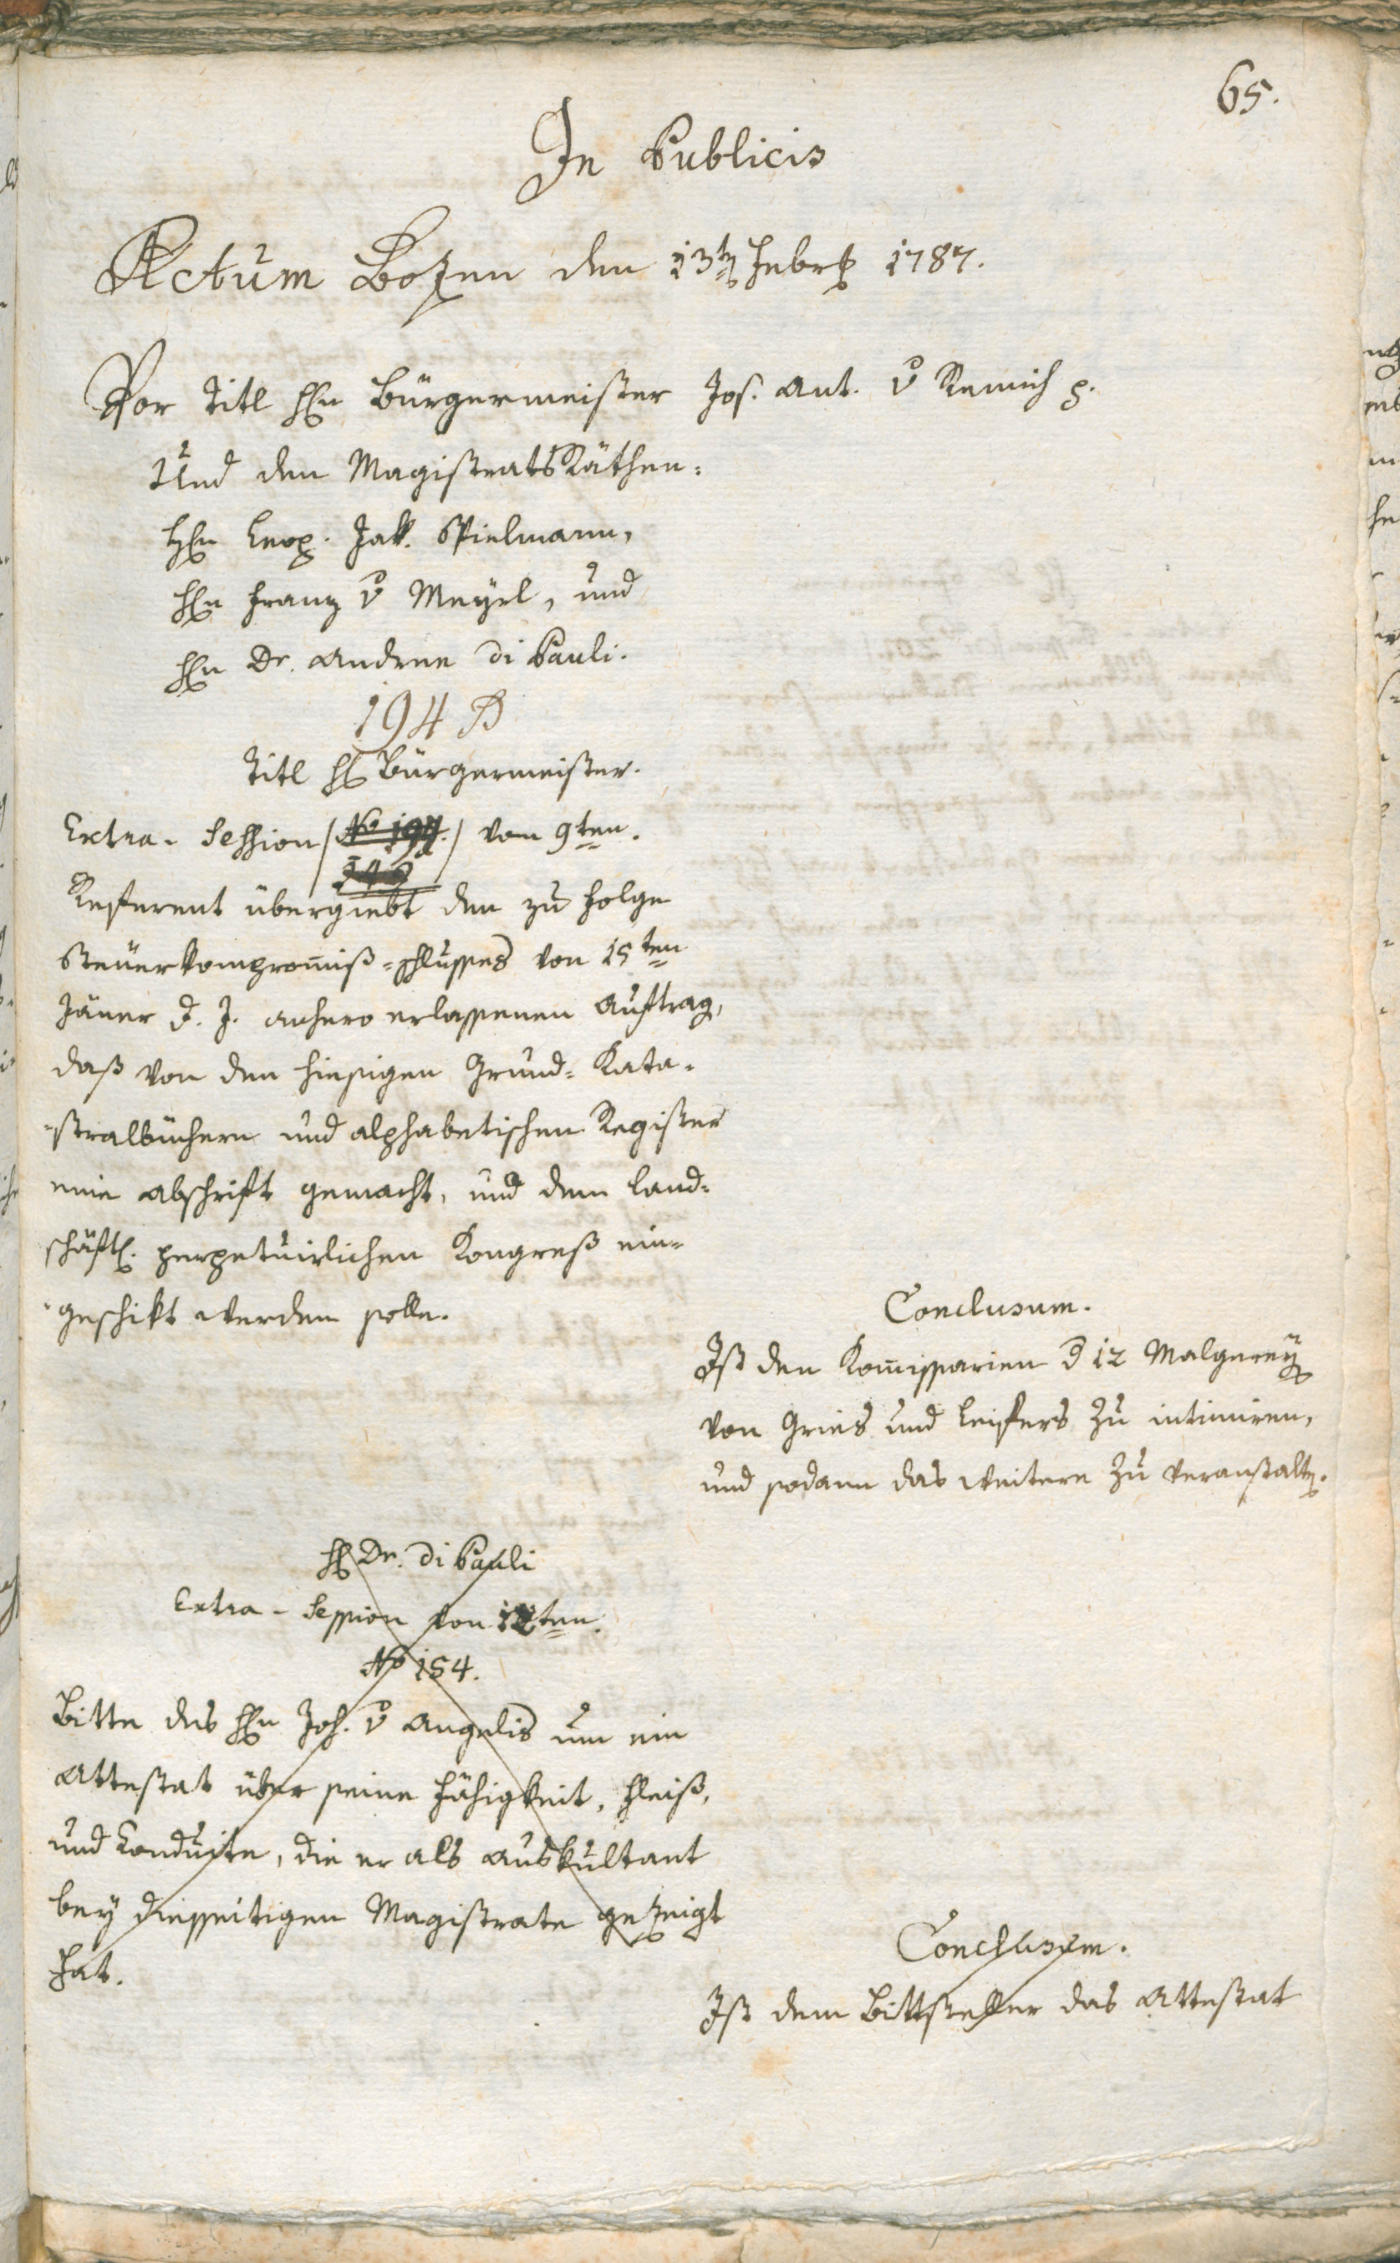 65.
In Publicis
Actum Bozen den 13tn Febr. 1787.
Vor Titl Hn Bürgermeister Jos. Ant. v Remich p.
Und den MagistratsRäthen:
Hn Leop. Jak. Spielmann,
Hn Franz v Meyrl, und
Hn Dr. Andree di Pauli.
194 B
Titl H Bürgermeister.
Extra-Session (No 194.) vom 9ten.
Referent übergiebt den zu Folge
Steuerkompromiß-Schlusses von 15ten
Jäner d. J. anhero erlassenen Auftrag,
daß von den hiesigen Grund-Kata-
stralbüchern und alphabetischen Register
eine Abschrift gemacht, und dem land-
schäftl. perpetuirlichen Kongreß ein-
geschikt werden solle.
Conclusum.
Ist den Kom̄issarien d 12 Malgerey
von Gries und Leifers zu intimiren,
und sodann das weitere zu veranstaltn.
H Dr. di Pauli
Extra-Session von 12ten.
No 154.
Bitte des Hn Joh. v Angelis um ein
Attestat über seine Fähigkeit, Fleiß,
und Konduite, die er als Auskultant
bey diesseitigen Magistrate gezeigt
hat.
Conclusum.
Ist dem Bittsteller das Attestat